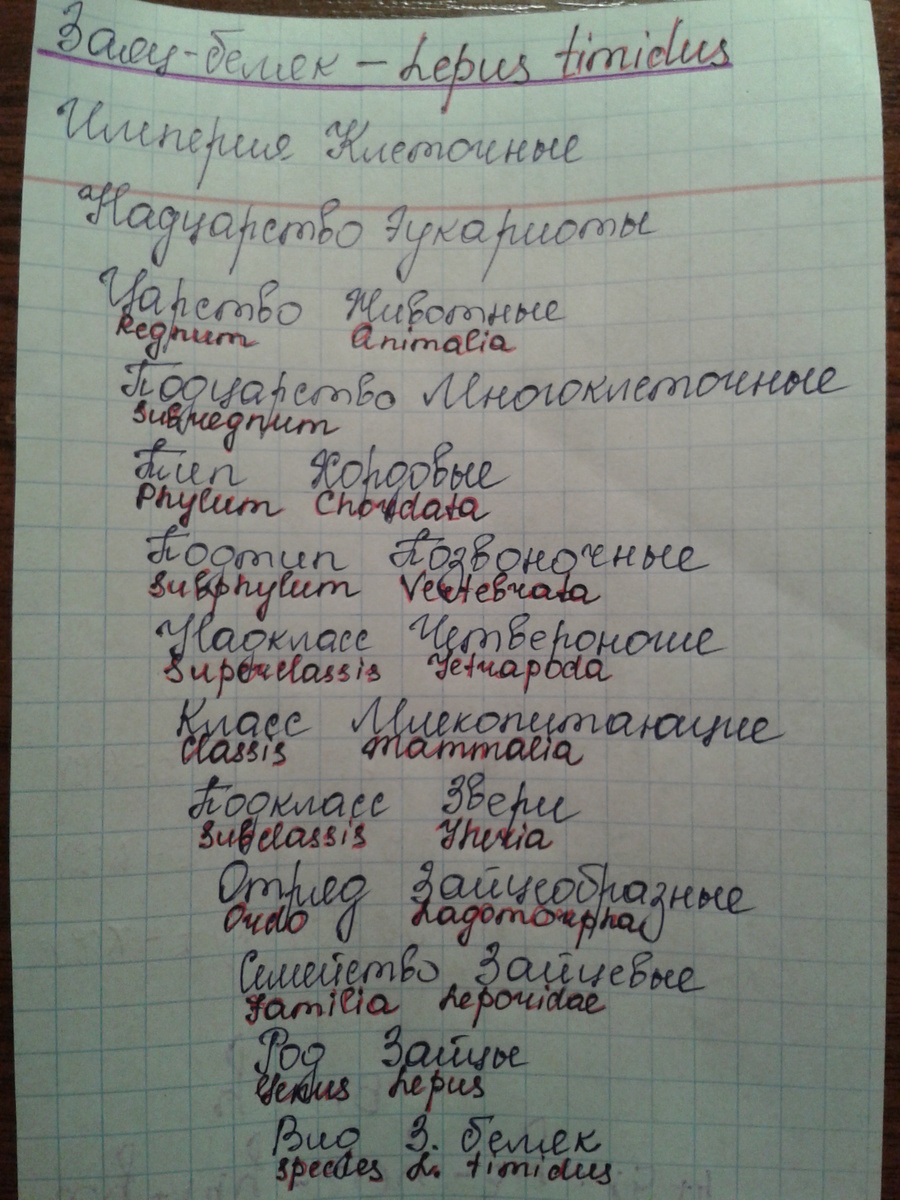 Заяц-беляк – Lepus timidus
Империя Клеточные
Надцарство Эукариоты
Царство Животные
Regnum Animalia
Подцарство Многоклеточные
Subregnum
Тип Хордовые
Phylum Chordata
Подтип Позвоночные
Subphylum Vertebrata
Надкласс Четвероногие
Superclassis Tetrapoda
Класс Млекопитающие
Classis Mammalia
Подкласс Звери
Subclassis Theria
Отряд Зайцеобразные
Ordo Lagomorpha
Семейство Зайцевые
Familia Leporidae
Род Зайцы
Genus Lepus
Вид З. беляк
species L. timidus